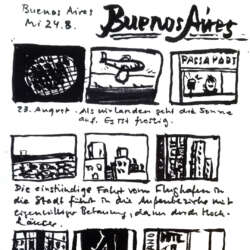 Buenos Aires
Mi 24.8.
Buenos Aires
PASSAPORT
23. August. Als wir landen geht die Sonne
auf. Es ist frostig.
Die einstündige Fahrt vom Flughafen in
die Stadt führt in die Außenbezirke mit
eigenwilliger Bebauung, dann durch Hoch-
häuser.